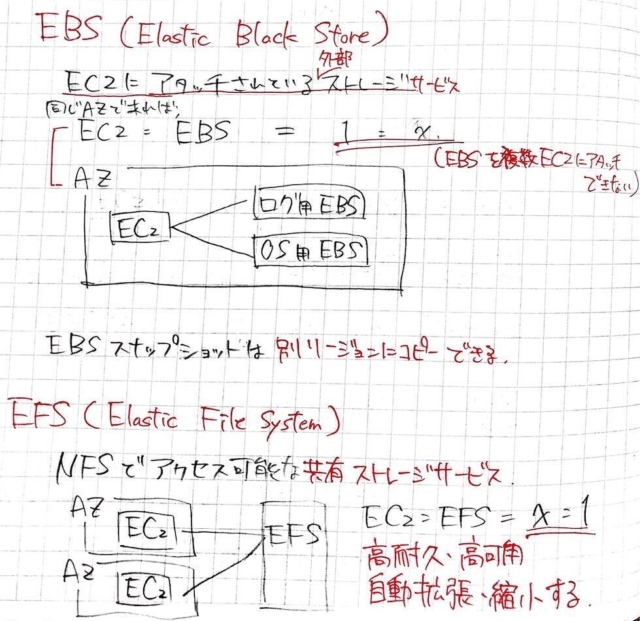 EBS (Elastic Black Store)
外部
EC2にアタッチされているストレージサービス
同じAZであれば、
EC2 : EBS = 1 : x.
(EBSを複数EC2にアタッチ
できない)
AZ
EC2
ログ用EBS
OS用EBS
EBSスナップショットは別リージョンにコピーできる.
EFS (Elastic File System)
NFSでアクセス可能な共有ストレージサービス.
AZ
EC2
EFS
AZ
EC2
EC2 = EFS = x = 1
高耐久、高可用
自動拡張、縮小する.